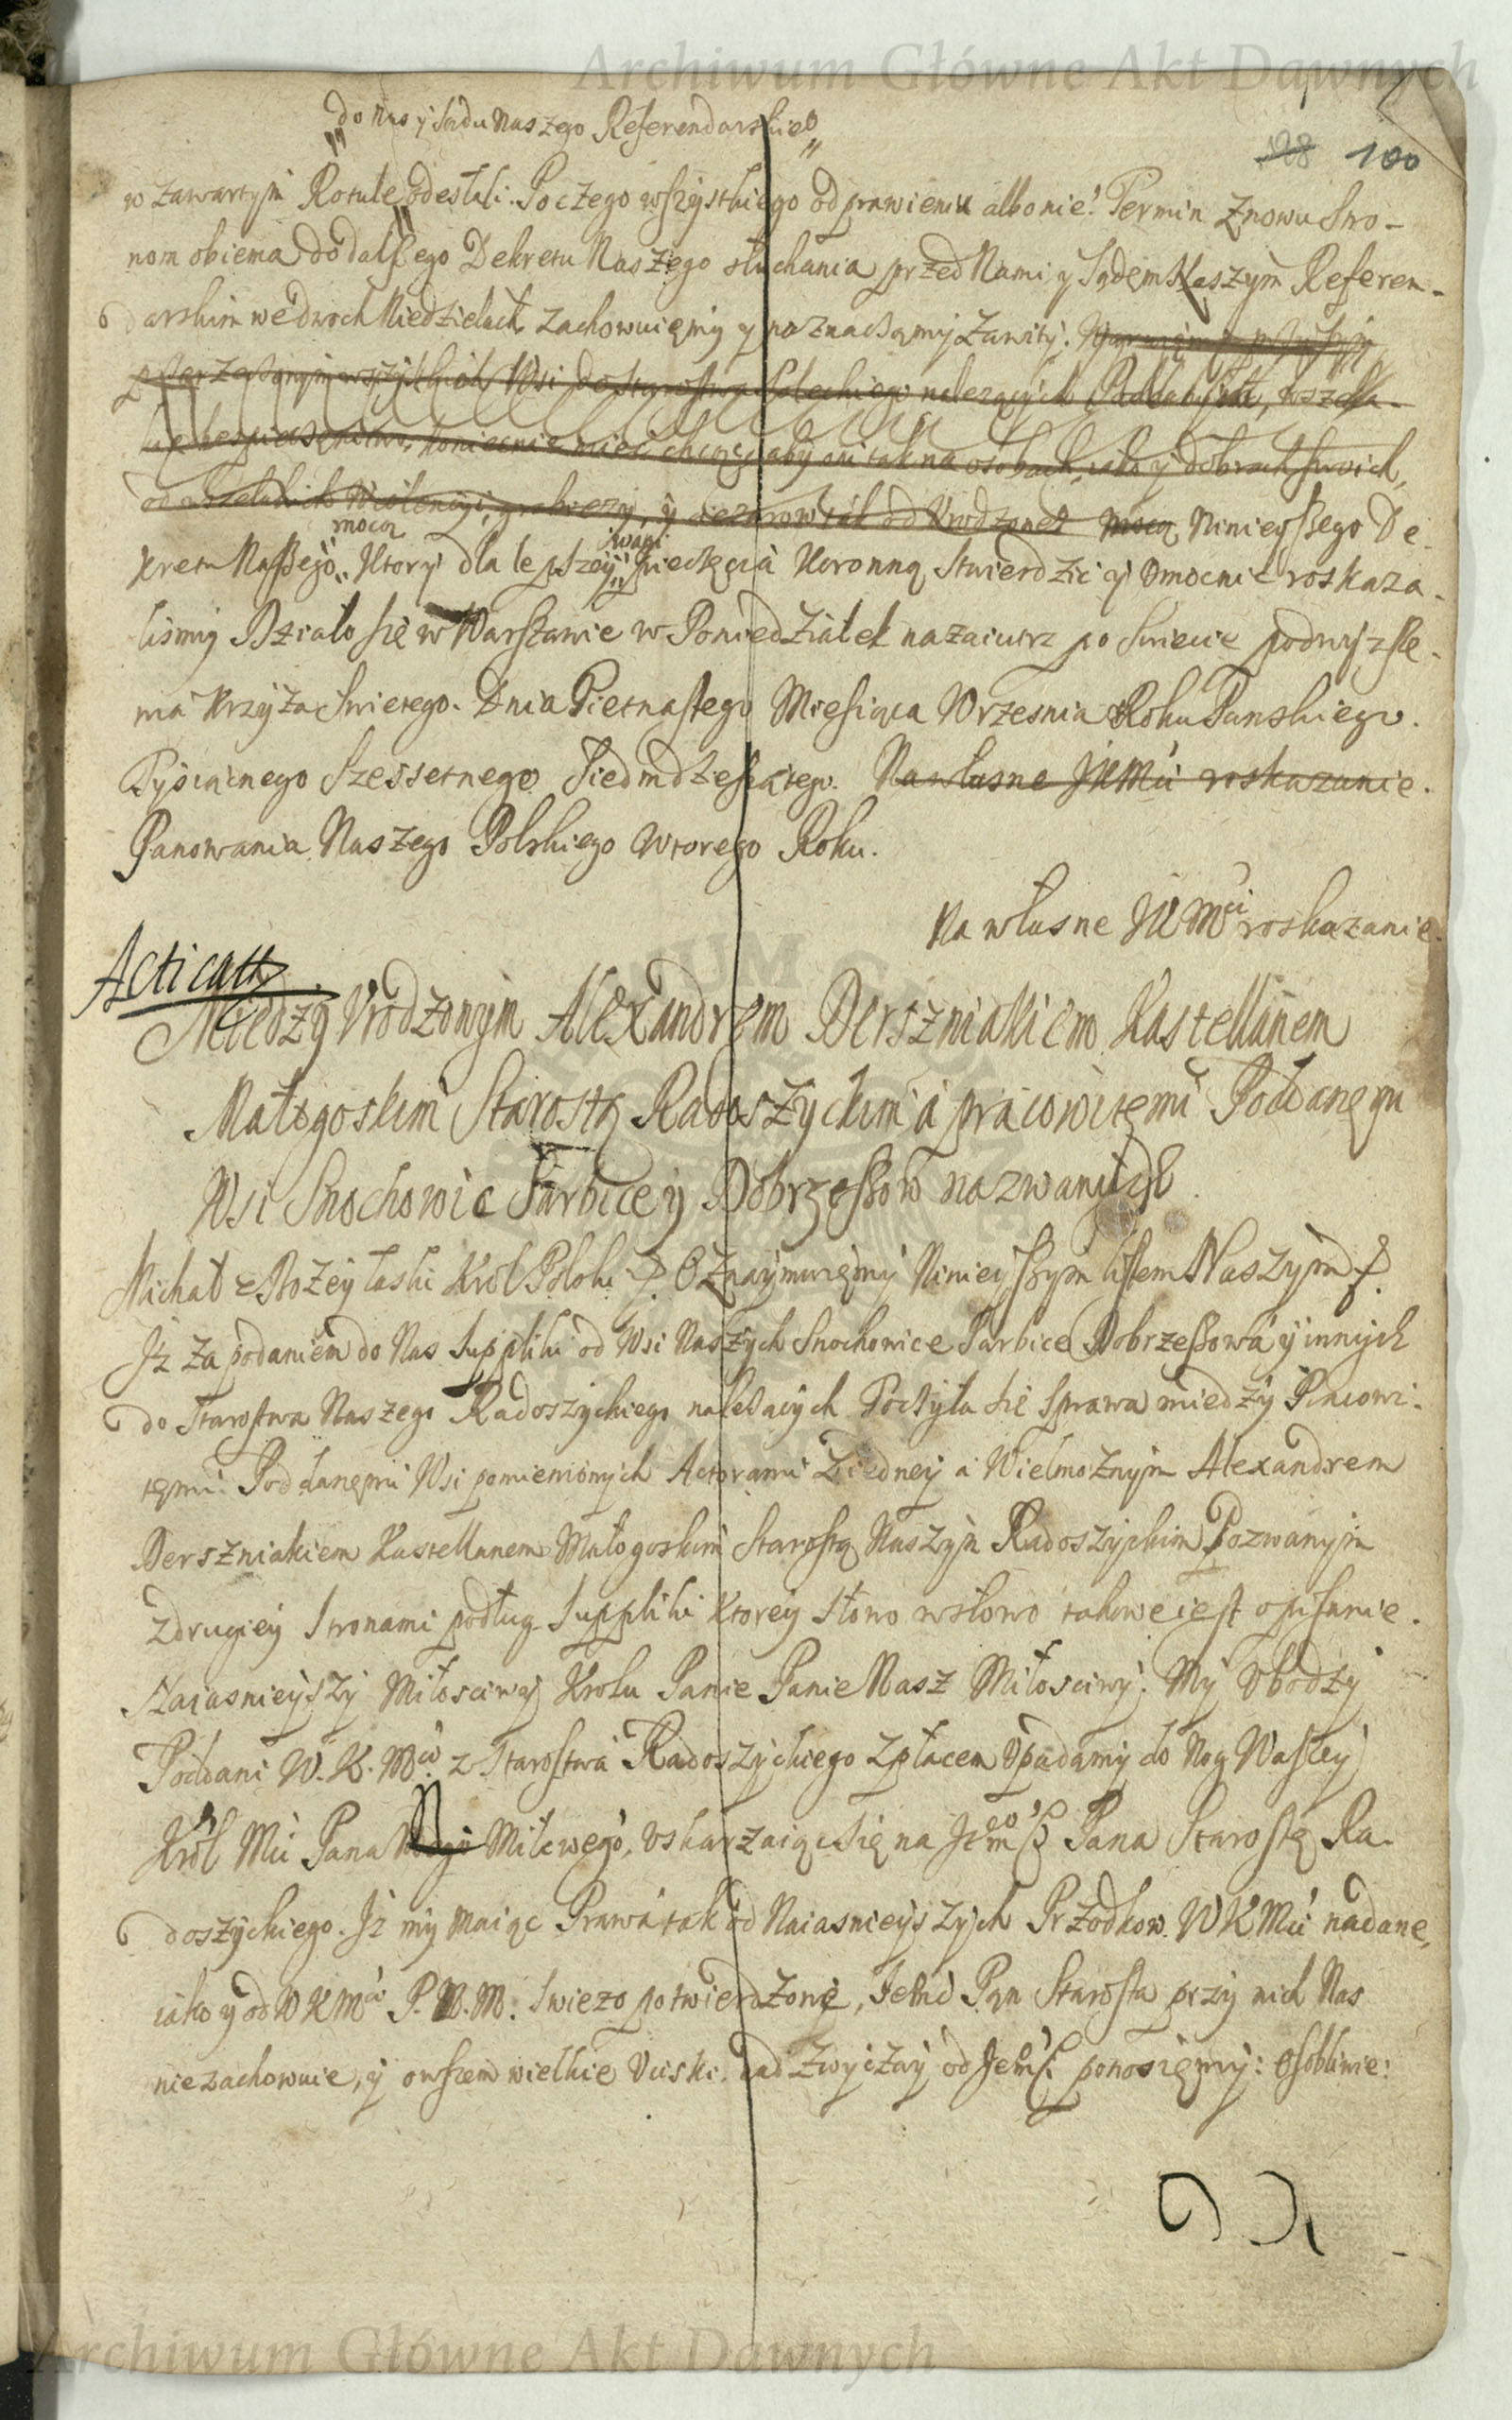 Archiwum Główne Akt Dawnych
"do Nas y Sądu Naszego Referendarskiego"
198 100
w zawartym Rotule odesłali. Po czego wszystkiego odprawieniu albo nie. Termin znowu Stro-
nom obiema do dalszego Dekretu Naszego słuchania przed Nami y Sądem Naszym Referen-
darskim we dwoch Niedzielach zachowuięmy y naznaczamy zawity.
wszytkich Wsi do Starostwa należących Poddanych, wszela-
kie bespieczenstwo, koniecznie mieć chcąc aby oni tak na osobach, iako y dobrach swoich,
od wszelakich Violencyi, grabieży, y ciezarow tak od Vrodzonego mocą Ninieyszego De-
mocą wagi
kretu Naszego, Ktory dla lepszey pieczęcią Koronną stwierdzić y umocnić roskaza-
lismy Działo się w Warszawie w Poniedziałek nazaiutrz po Swiecie podwyzsze-
nia Krzyża Swietego. Dnia Pietnastego Miesiąca Wrzesnia Roku Panskiego.
Tysiącnego Szessetnego Siedmdziesiątego. Na własne JKMci roskazanie.
Panowania Naszego Polskiego wtorego Roku.
Na własne JKMci roskazanie.
Acticatt.
Miedzy Vrodzonym Alexandrem Derszniakiem Kastellanem
Małogoskim Starostą Radoszyckim a pracowitemi Poddanemi
Wsi Snochowic Sarbice y Dobrzeszow nazwanych
Michał z Bożey łaski Krol Polski. Oznaymuięmy Ninieyszym listem Naszym
Jż za podaniem do Nas Suppliki od Wsi Naszych Snochowice Sarbice Dobrzeszowa y innych
do Starostwa Naszego Radoszyckiego należących Toczyła się Sprawa miedzy Pracowi-
temi Poddanemi Wsi pomienionych Actorami z iedney a Wielmożnym Alexandrem
Derszniakiem Kastellanem Małogoskim Starostą Naszym Radoszyckim Pozwanym
z drugiey Stronami podług Suppliki ktorey słowo w słowo takowe iest opisanie.
Naiasnieyszy Miłosciwy Krolu Panie Panie Nasz Miłosciwy. My Vbodzy
Poddani W. K. Mci z Starostwa Radoszyckiego z płacem Vpadamy do Nog Waszey
Krol Mci Pana Miłcwego, Vskarzaiąc się na Jego Pana Starostę Ra-
doszyckiego. Jż my maiąc Prawa tak od Naiasnieyszych Przodkow. W K Mci nadane,
iako y od W K Mci P. N. M. swiezo potwierdzone, Pan Starosta przy nich Nas
nie zachowuie, y owszem wielkie Vciski. nad zwyczay od ponosięmy: osobliwie:
Archiwum Główne Akt Dawnych